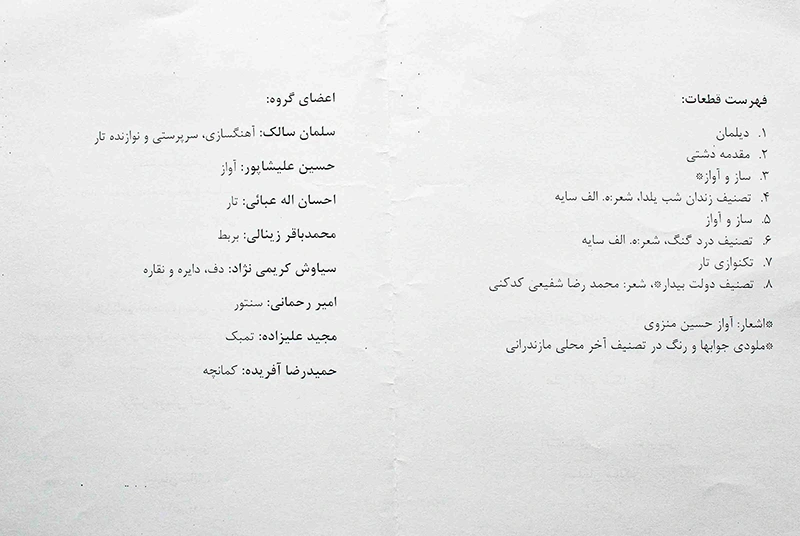 فهرست قطعات:
۱. دیلمان
۲. مقدمه دَشتی
۳. ساز و آواز*
۴. تصنیف زندان شب یلدا، شعر:ه. الف سایه
۵. ساز و آواز
۶. تصنیف درد گنگ، شعر:ه. الف سایه
۷. تکنوازی تار
۸. تصنیف دولت بیدار*، شعر: محمد رضا شفیعی کدکنی
*اشعار: آواز حسین منزوی
*ملودی جوابها و رنگ در تصنیف آخر محلی مازندرانی
اعضای گروه:
سلمان سالک: آهنگسازی، سرپرستی و نوازنده تار
حسین علیشاپور: آواز
احسان اله عبائی: تار
محمدباقر زینالی: بربط
سیاوش کریمی نژاد: دف، دایره و نقاره
امیر رحمانی: سنتور
مجید علیزاده: تمبک
حمیدرضا آفریده: کمانچه